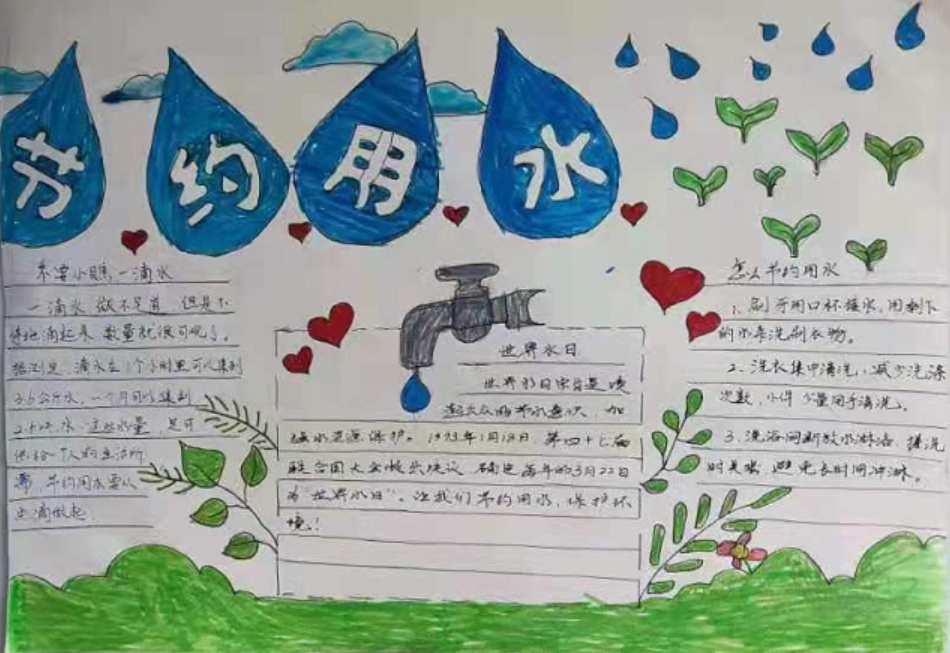 节约用水
不要小瞧一滴水
一滴水微不足道 但是不
停地滴起来 数量就很可观了。
据测定,滴水在1个小时里可以集到
3.6公斤水,一个月可以集到
2.6吨水 这些水量,足可
供给一个人的生活所
需,节约用水要从
点滴做起
世界水日
世界水日宗旨是唤
起公众的节水意识,加
强水资源保护。1993年1月18日,第四十七届
联合国大会做出决议,确定每年的3月22日
为"世界水日"。让我们节约用水,保护环
境!
怎么节约用水
1、刷牙用口杯接水,用剩下
的水来洗刷衣物。
2、洗衣集中清洗,减少洗涤
次数,小件 少量用手清洗。
3、洗浴间断放水淋浴、搓洗
时关紧,避免长时间冲淋。